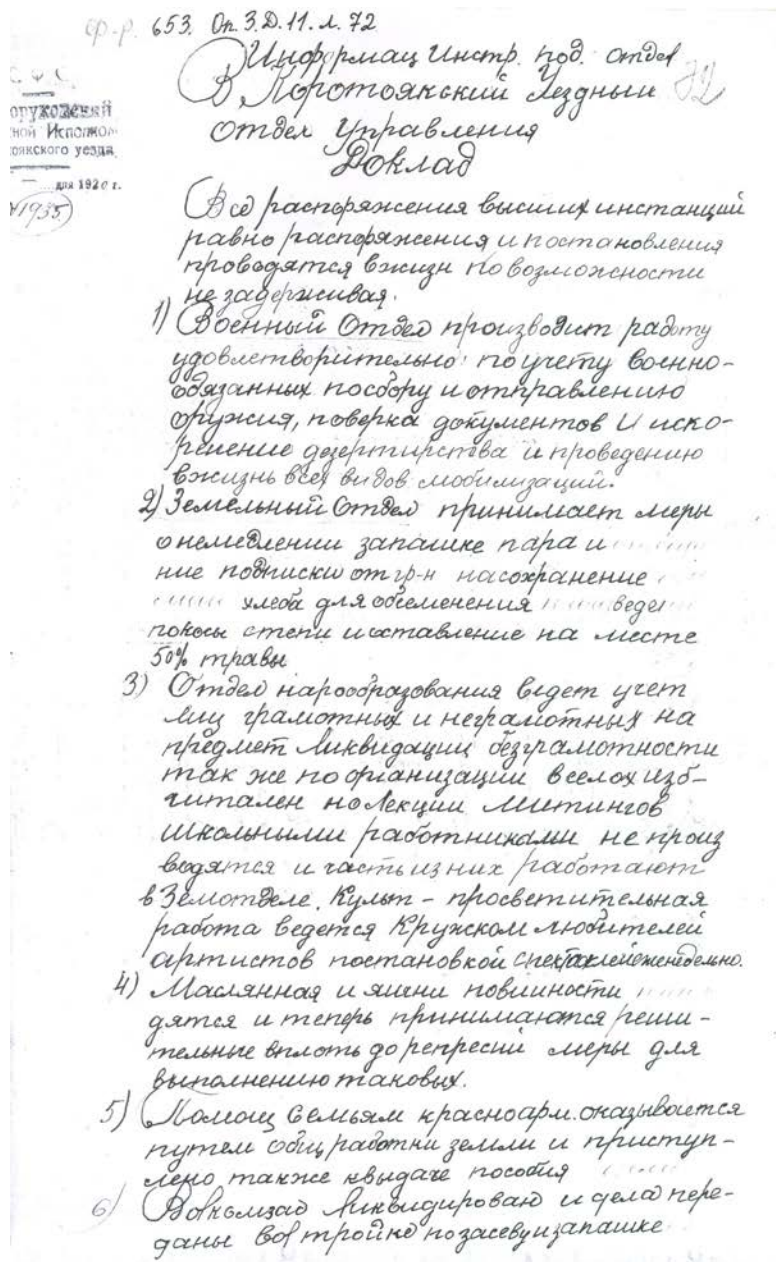 ф-р. 653. Оп. 3. Д. 11. л. 72
Информац Инстр. под. отдел
В Коротоякский Уездный 72
отдел Управления
Доклад
С. Ф. С.
оружений
ной Исполком
оякского уезда
дня 1920 г.
1935
Все распоряжения высших инстанций
равно распоряжения и постановления
проводятся вжизн по возможности
не задерживая.
1) Военный Отдел производит работу
удовлетворительно: по учету военно-
обязанных посбору и отправлению
оружия, поверка документов и иско-
ренение дезертирства и проведению
вжизнь всех видов мобилизаций.
2) Земельный Отдел принимает меры
о немедлении запашке пара и
ние подписки от гр-н насохранение
хлеба для обсеменения ведет
покосы степи и оставление на месте
50% травы
3) Отдел нарообразования ведет учет
лиц грамотных и неграмотных на
предмет ликвидации безграмотности
так же по организации в селах изб-
читален но лекции митингов
школьными работниками не произ
водятся и часть из них работают
в Земотделе. Культ - просветительная
работа ведется Кружком любителей
артистов постановкой спектаклей еженедельно.
4) Маслянная и яични повинности
дятся и теперь принимаются реши-
тельные вплоть до репресий меры для
выполнению таковых.
5) Помощ Семьям красноарм. оказывается
путем общ работки земли и приступ-
лено также квыдаче пособия
6) Волкомзад ликвидирован и дела пере-
даны вол тройке по засеву и запашке